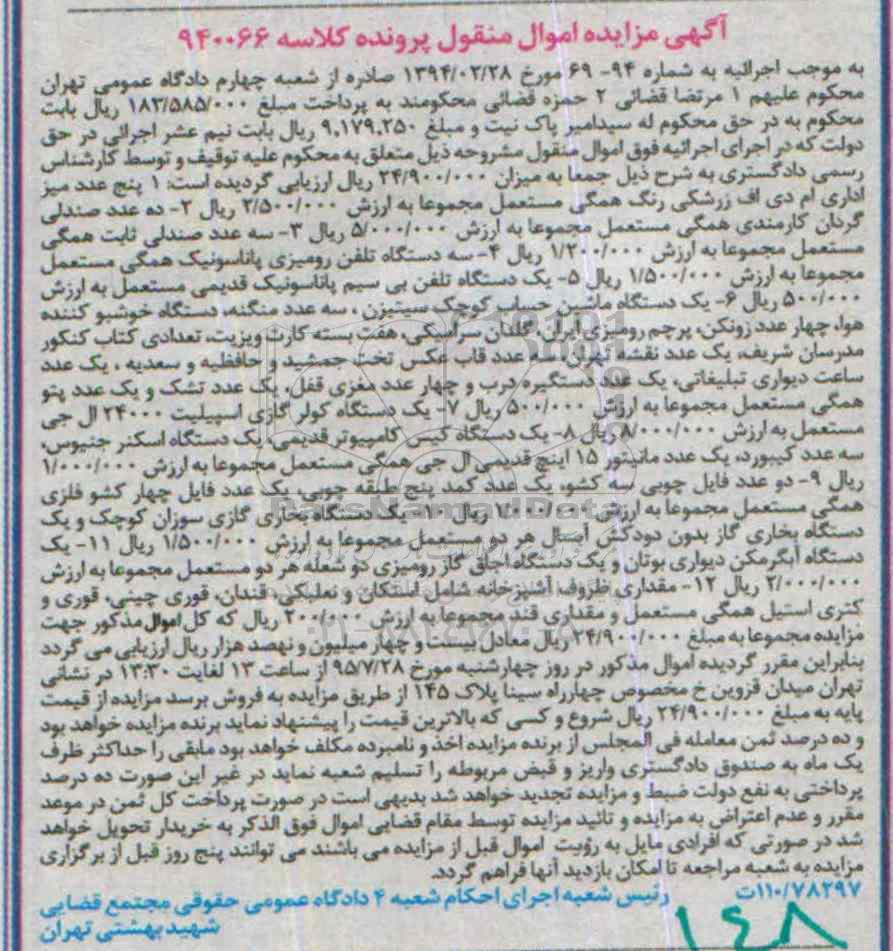 آگهی مزایده اموال منقول پرونده کلاسه ۹۴۰۰۶۶
به موجب اجرائیه به شماره ۹۴- ۶۹ مورخ ۱۳۹۴/۰۲/۲۸ صادره از شعبه چهارم دادگاه عمومی تهران
محکوم علیهم ۱ مرتضا قضائی ۲ حمزه قضائی محکومند به پرداخت مبلغ ۱۸۳/۵۸۵/۰۰۰ ریال بابت
محکوم به در حق محکوم له سیدامیر پاک نیت و مبلغ ۹,۱۷۹,۲۵۰ ریال بابت نیم عشر اجرائی در حق
دولت که در اجرای اجرائیه فوق اموال منقول مشروحه ذیل متعلق به محکوم علیه توقیف و توسط کارشناس
رسمی دادگستری به شرح ذیل جمعا به میزان ۲۴/۹۰۰/۰۰۰ ریال ارزیابی گردیده است: ۱ پنج عدد میز
اداری ام دی اف زرشکی رنگ همگی مستعمل مجموعا به ارزش ۲/۵۰۰/۰۰۰ ریال ۲- ده عدد صندلی
گردان کارمندی همگی مستعمل مجموعا به ارزش ۵/۰۰۰/۰۰۰ ریال ۳- سه عدد صندلی ثابت همگی
مستعمل مجموعا به ارزش ۱/۲۰۰/۰۰۰ ریال ۴- سه دستگاه تلفن رومیزی پاناسونیک همگی مستعمل
مجموعا به ارزش ۱/۵۰۰/۰۰۰ ریال ۵- یک دستگاه تلفن بی سیم پاناسونیک قدیمی مستعمل به ارزش
۵۰۰/۰۰۰ ریال ۶- یک دستگاه ماشین حساب کوچک سیتیزن ، سه عدد منگنه، دستگاه خوشبو کننده
هوا، چهار عدد زونکن، پرچم رومیزی ایران، گلدان سرامیکی، هفت بسته کارت ویزیت، تعدادی کتاب کنکور
مدرسان شریف، یک عدد نقشه تهران، سه عدد قاب عکس تخت جمشید و حافظیه و سعدیه ، یک عدد
ساعت دیواری تبلیغاتی، یک عدد دستگیره درب و چهار عدد مغزی قفل، یک عدد تشک و یک عدد پتو
همگی مستعمل مجموعا به ارزش ۵۰۰/۰۰۰ ریال ۷- یک دستگاه کولر گازی اسپیلیت ۲۴۰۰۰ ال جی
مستعمل به ارزش ۸/۰۰۰/۰۰۰ ریال ۸- یک دستگاه کیس کامپیوتر قدیمی، یک دستگاه اسکنر جنیوس،
سه عدد کیبورد، یک عدد مانیتور ۱۵ اینچ قدیمی ال جی همگی مستعمل مجموعا به ارزش ۱/۰۰۰/۰۰۰
ریال ۹- دو عدد فایل چوبی سه کشو، یک عدد کمد پنج طبقه چوبی، یک عدد فایل چهار کشو فلزی
همگی مستعمل مجموعا به ارزش ۱/۰۰۰/۰۰۰ ریال ۱۰- یک دستگاه بخاری گازی سوزان کوچک و یک
دستگاه بخاری گاز بدون دودکش آبسال هر دو مستعمل مجموعا به ارزش ۱/۵۰۰/۰۰۰ ریال ۱۱- یک
دستگاه آبگرمکن دیواری بوتان و یک دستگاه اجاق گاز رومیزی دو شعله هر دو مستعمل مجموعا به ارزش
۲/۰۰۰/۰۰۰ ریال ۱۲- مقداری ظروف آشپزخانه شامل استکان و نعلبکی، قندان، قوری چینی، قوری و
کتری استیل همگی مستعمل و مقداری قند مجموعا به ارزش ۲۰۰/۰۰۰ ریال که کل اموال مذکور جهت
مزایده مجموعا به مبلغ ۲۴/۹۰۰/۰۰۰ ریال معادل بیست و چهار میلیون و نهصد هزار ریال ارزیابی می گردد
بنابراین مقرر گردیده اموال مذکور در روز چهارشنبه مورخ ۹۵/۷/۲۸ از ساعت ۱۳ لغایت ۱۳:۳۰ در نشانی
تهران میدان قزوین خ مخصوص چهارراه سینا پلاک ۱۴۵ از طریق مزایده به فروش برسد مزایده از قیمت
پایه به مبلغ ۲۴/۹۰۰/۰۰۰ ریال شروع و کسی که بالاترین قیمت را پیشنهاد نماید برنده مزایده خواهد بود
و ده درصد ثمن معامله فی المجلس از برنده مزایده اخذ و نامبرده مکلف خواهد بود مابقی را حداکثر ظرف
یک ماه به صندوق دادگستری واریز و قبض مربوطه را تسلیم شعبه نماید در غیر این صورت ده درصد
پرداختی به نفع دولت ضبط و مزایده تجدید خواهد شد بدیهی است در صورت پرداخت کل ثمن در موعد
مقرر و عدم اعتراض به مزایده و تائید مزایده توسط مقام قضایی اموال فوق الذکر به خریدار تحویل خواهد
شد در صورتی که افرادی مایل به رؤیت اموال قبل از مزایده می باشند می توانند پنج روز قبل از برگزاری
مزایده به شعبه مراجعه تا امکان بازدید آنها فراهم گردد.
۱۱۰/۷۸۲۹۷ت رئیس شعبه اجرای احکام شعبه ۴ دادگاه عمومی حقوقی مجتمع قضایی
شهید بهشتی تهران
۱۴۸
ParsNamadData